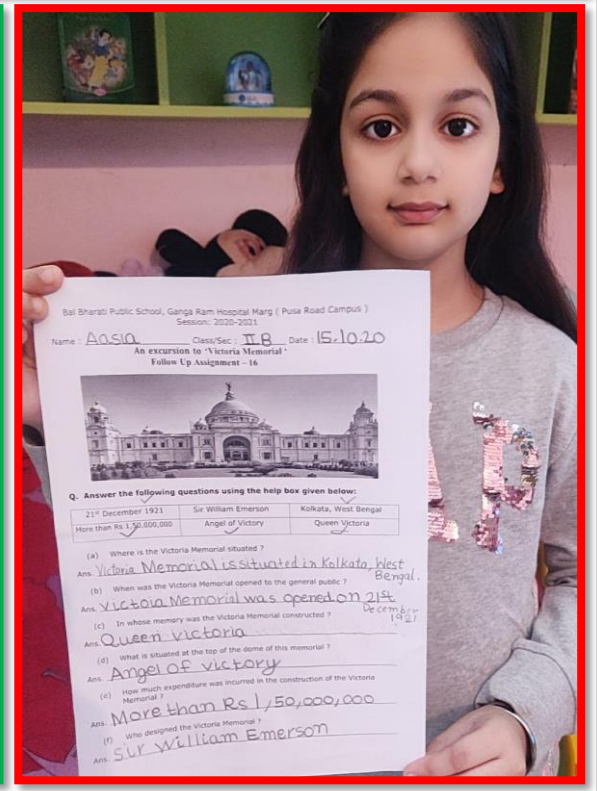 Bal Bharati Public School, Ganga Ram Hospital Marg ( Pusa Road Campus )
Session: 2020-2021
Name : Aasia Class/Sec : II B Date : 15.10.20
An excursion to 'Victoria Memorial'
Follow Up Assignment – 16
Q. Answer the following questions using the help box given below:
21st December 1921 Sir William Emerson Kolkata, West Bengal
More than Rs 1,50,000,000 Angel of Victory Queen Victoria
(a) Where is the Victoria Memorial situated ?
Ans. Victoria Memorial is situated in Kolkata, West
Bengal.
(b) When was the Victoria Memorial opened to the general public ?
Ans. Victoia Memorial was opened on 21st
December
1921
(c) In whose memory was the Victoria Memorial constructed ?
Ans. Queen victoria
(d) What is situated at the top of the dome of this memorial ?
Ans. Angel of victory
(e) How much expenditure was incurred in the construction of the Victoria
Memorial ?
Ans. More than Rs 1,50,000,000
(f) Who designed the Victoria Memorial ?
Ans. Sir William Emerson
AP